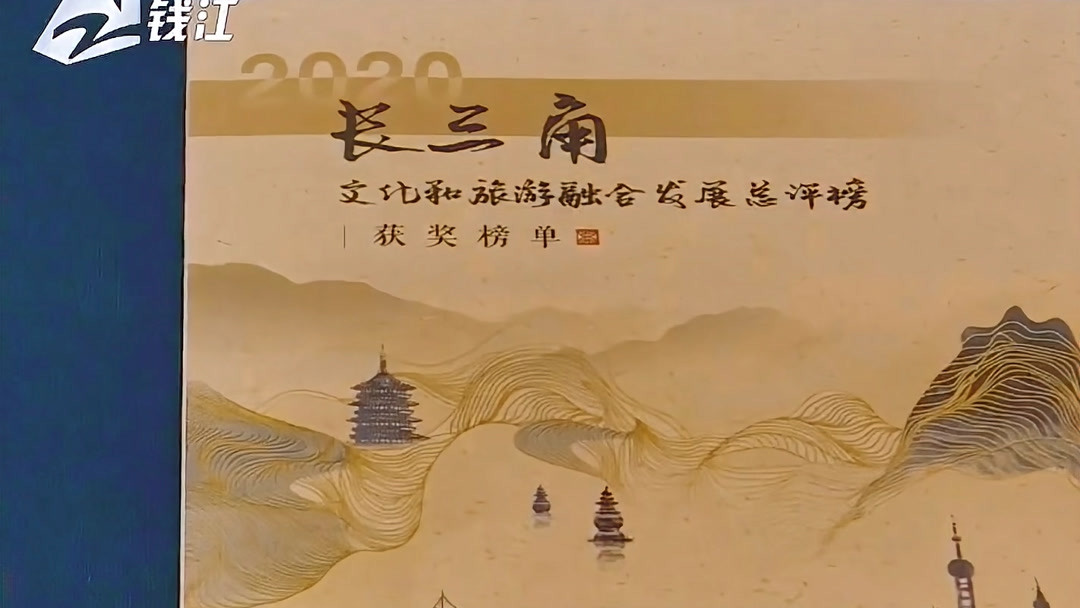 钱江
2020
长三角
文化和旅游融合发展总评榜
获奖榜单